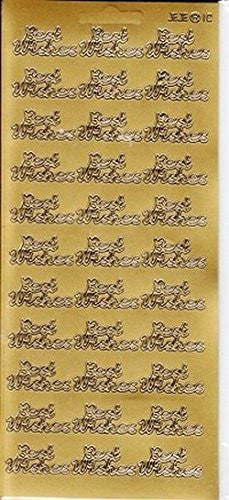 JEJE
Best Best Best
Wishes Wishes Wishes
Best Best Best
Wishes Wishes Wishes
Best Best Best
Wishes Wishes Wishes
Best Best Best
Wishes Wishes Wishes
Best Best Best
Wishes Wishes Wishes
Best Best Best
Wishes Wishes Wishes
Best Best Best
Wishes Wishes Wishes
Best Best Best
Wishes Wishes Wishes
Best Best Best
Wishes Wishes Wishes
Best Best Best
Wishes Wishes Wishes
Best Best Best
Wishes Wishes Wishes